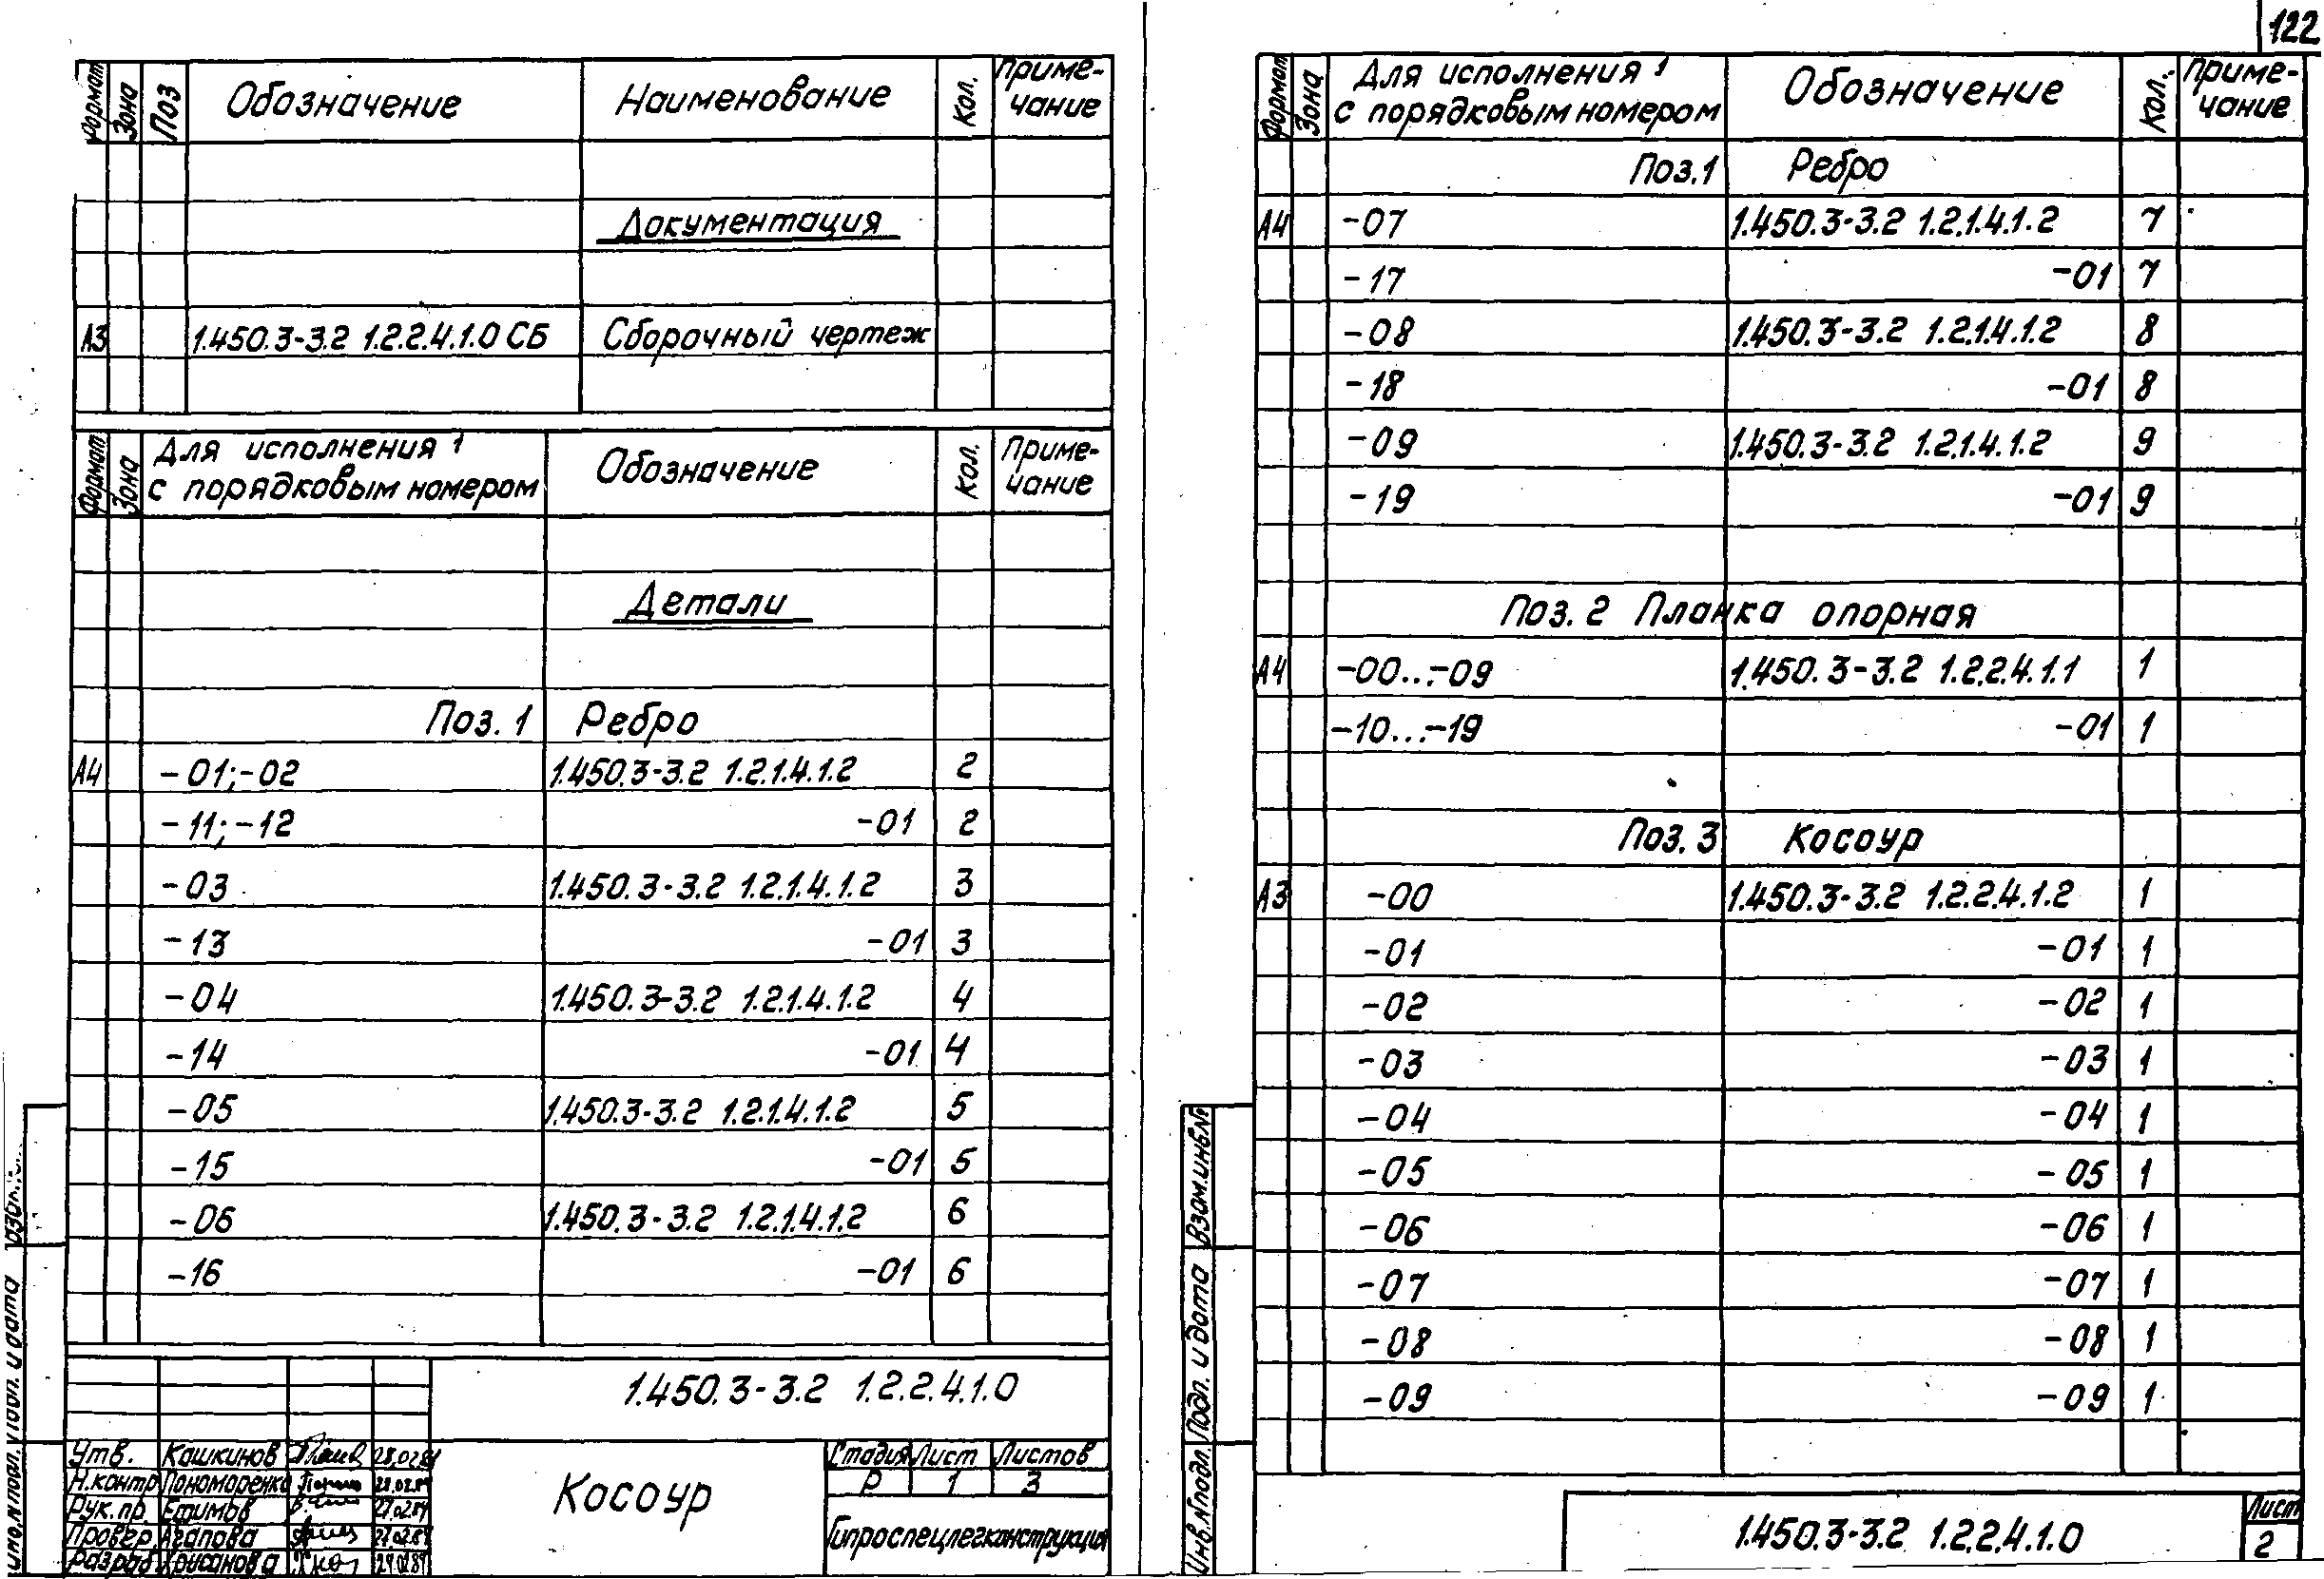 122
Формат Зона Поз Обозначение Наименование Кол. Приме-
чание
Документация
А3 1.450.3-3.2 1.2.2.4.1.0 СБ Сборочный чертеж
Формат Зона Для исполнения 1 Обозначение Кол. Приме-
с порядковым номером чание
Детали
Поз. 1 Ребро
А4 -01;-02 1.450.3-3.2 1.2.1.4.1.2 2
-11;-12 -01 2
-03 1.450.3-3.2 1.2.1.4.1.2 3
-13 -01 3
-04 1.450.3-3.2 1.2.1.4.1.2 4
-14 -01 4
-05 1.450.3-3.2 1.2.1.4.1.2 5
-15 -01 5
-06 1.450.3-3.2 1.2.1.4.1.2 6
-16 -01 6
1.450.3-3.2 1.2.2.4.1.0
Утв. Кашкинов
Н.контр Пономоренко
Рук.пр. Ефимов
Провер Агапова
Разраб Хрисанова
Косоур
Стадия Лист Листов
Р 1 3
Гипроспецлегконструкция
Формат Зона Для исполнения 1 Обозначение Кол. Приме-
с порядковым номером чание
Поз.1 Ребро
А4 -07 1.450.3-3.2 1.2.1.4.1.2 7
-17 -01 7
-08 1.450.3-3.2 1.2.1.4.1.2 8
-18 -01 8
-09 1.450.3-3.2 1.2.1.4.1.2 9
-19 -01 9
Поз. 2 Планка опорная
А4 -00...-09 1.450.3-3.2 1.2.2.4.1.1 1
-10...-19 -01 1
Поз. 3 Косоур
А3 -00 1.450.3-3.2 1.2.2.4.1.2 1
-01 -01 1
-02 -02 1
-03 -03 1
-04 -04 1
-05 -05 1
-06 -06 1
-07 -07 1
-08 -08 1
-09 -09 1
Взам.инв.№
Подп. и дата
Инв.№подл.
1.450.3-3.2 1.2.2.4.1.0
Лист
2